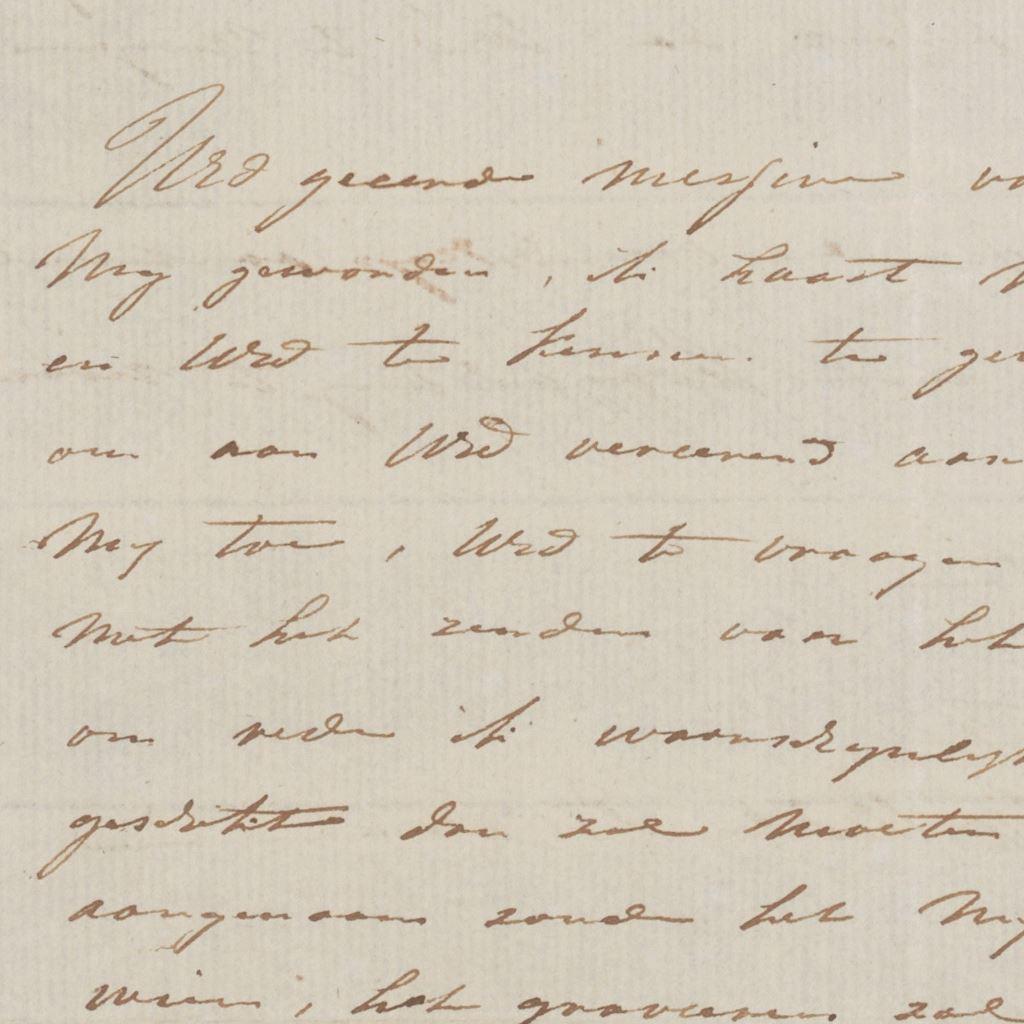 UEd geeerde messive
My geworden, ik haast
en UEd te kennen te
om aan UEd vereerend
My toe, UEd te vraagen
Met het zenden van het
om reden ik waarschynlyk
geschikte dan zal Moeten
aangenaam zoude het My
weesen, het graveeren zal